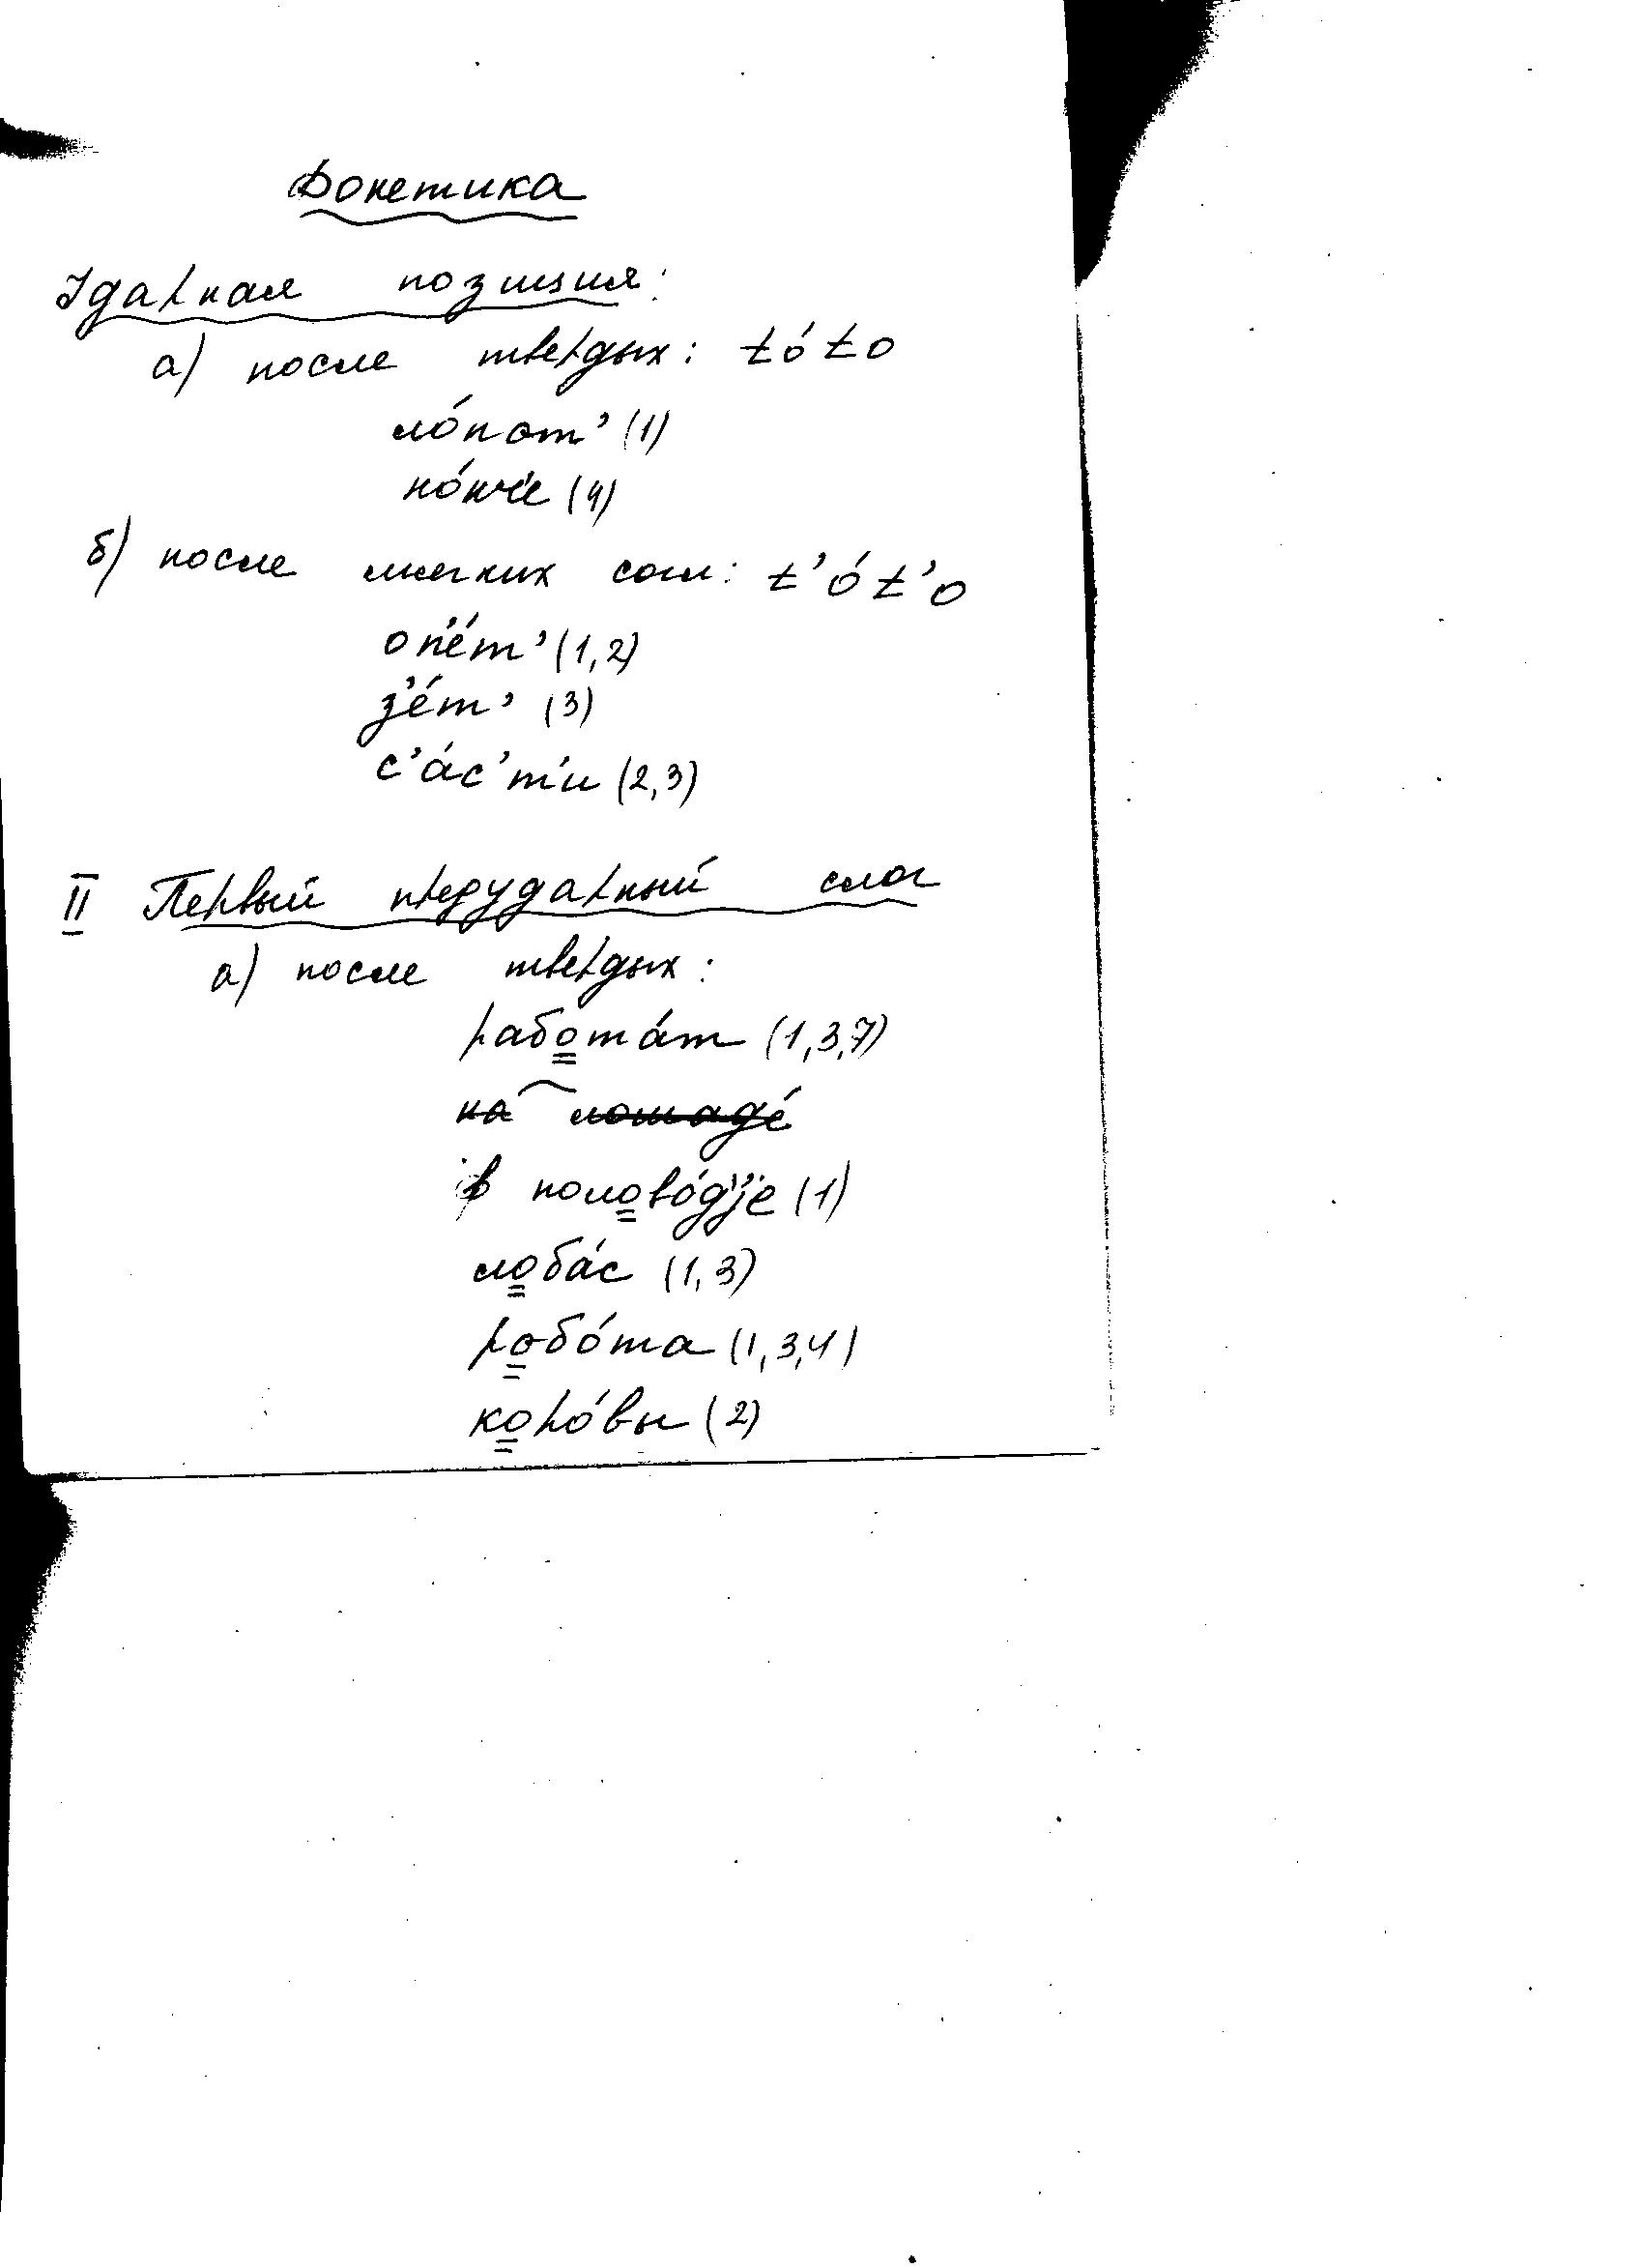 Фонетика
Ударная позиция:
а) после твердых: t ó t o
ло́пот' (1)
но́нч'е (4)
б) после мягких согл: t' ó t' o
оп'е́т' (1,2)
з'е́т' (3)
с'а́с'т'и (2,3)
II Первый предударный слог
а) после твердых:
работа́т (1,3,7)
на лошаде́
в полово́д'jе (1)
лоба́с (1,3)
робо́та (1,3,4)
коро́вы (2)